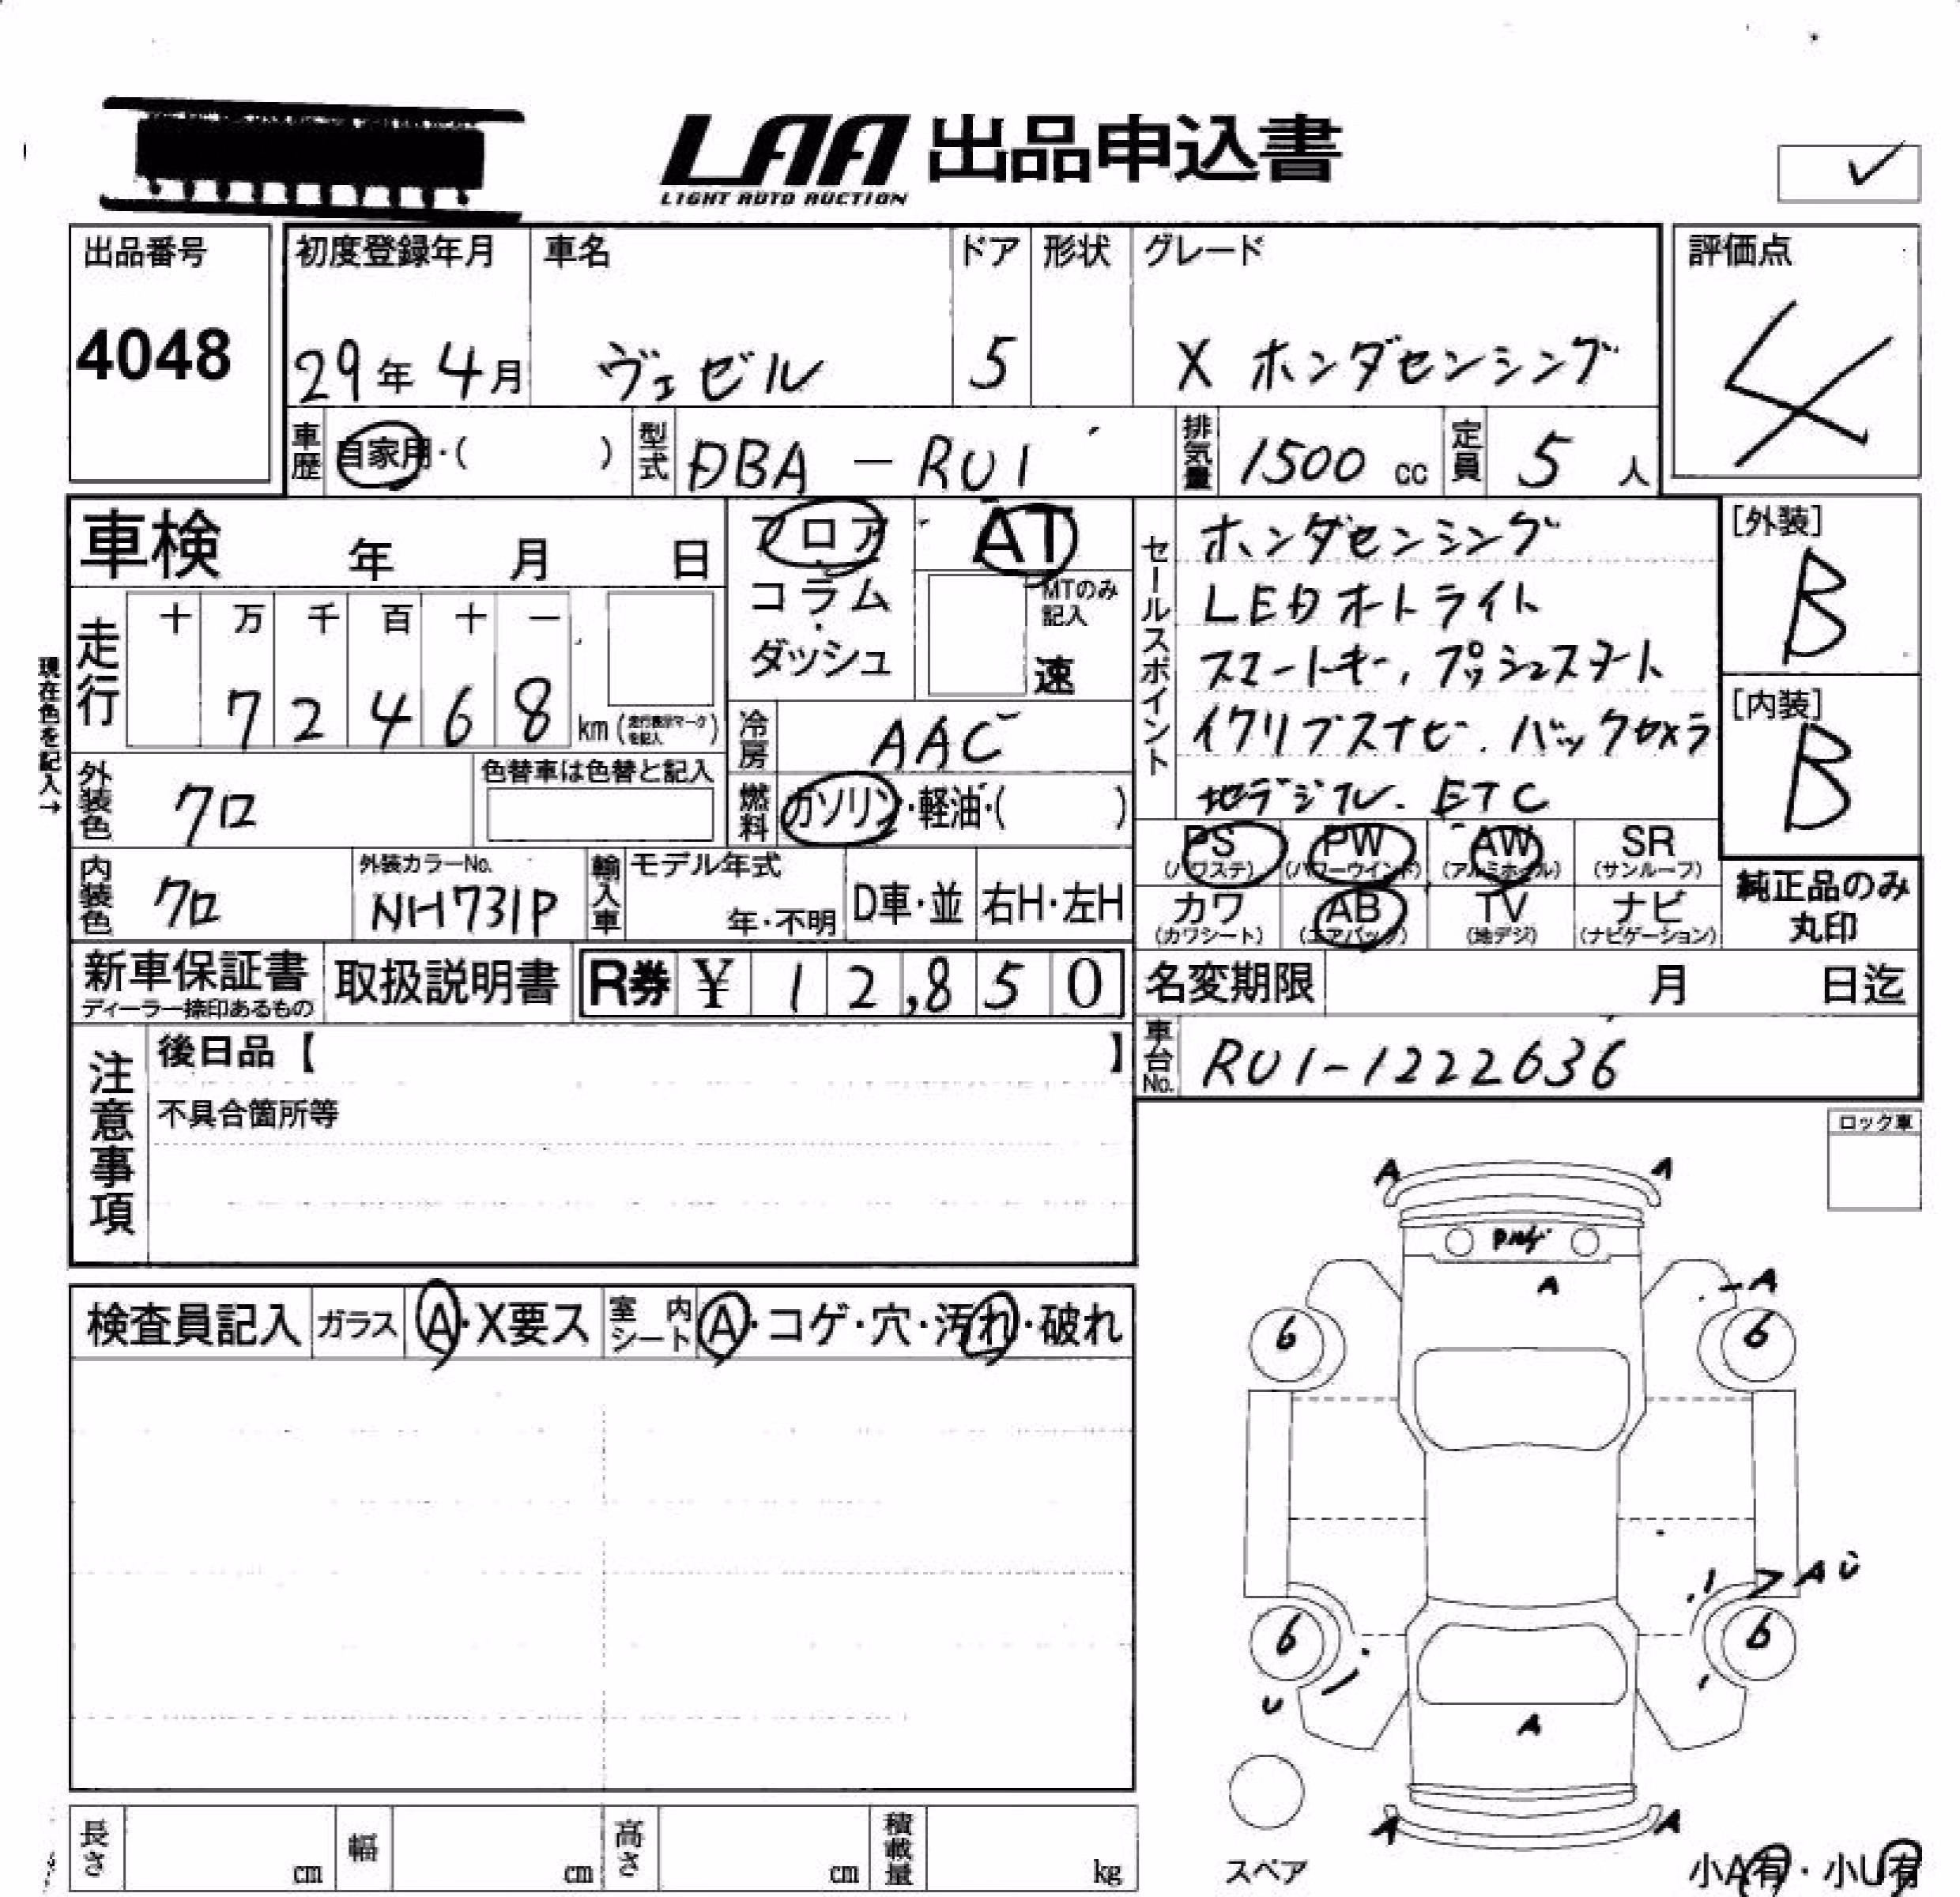 LAA 出品申込書
LIGHT AUTO AUCTION
出品番号
4048
初度登録年月
29年 4月
車名
ヴェゼル
ドア
5
形状
グレード
X ホンダセンシング
評価点
4
車歴 自家用・( )
型式 DBA-RU1
排気量 1500 cc
定員 5 人
車検 年 月 日
フロア
コラム
ダッシュ
AT
MTのみ記入
速
現在色を記入→
走行
十 万 千 百 十 一
7 2 4 6 8 km (走行表示マークを記入)
冷房 AAC
外装色 クロ
色替車は色替と記入
燃料 ガソリン・軽油・( )
内装色 クロ
外装カラーNo.
NH731P
輸入車
モデル年式
年・不明
D車・並
右H・左H
セールスポイント
ホンダセンシング
LEDオートライト
スマートキー, プッシュスタート
イクリプスナビ. バックカメラ
地デジTV. ETC
[外装]
B
[内装]
B
PS (パワステ)
PW (パワーウインド)
AW (アルミホイル)
SR (サンルーフ)
カワ (カワシート)
AB (エアバック)
TV (地デジ)
ナビ (ナビゲーション)
純正品のみ
丸印
新車保証書
ディーラー捺印あるもの
取扱説明書
R券 ¥ 12,850
名変期限 月 日迄
車台No. RU1-1222636
注意事項
後日品【 】
不具合箇所等
ロック車
検査員記入
ガラス A・X要ス
室内シート A・コゲ・穴・汚れ・破れ
A A
A
A
6 6
A U
6 6
U
A
A A
スペア
小A有・小U有
長さ cm
幅 cm
高さ cm
積載量 kg